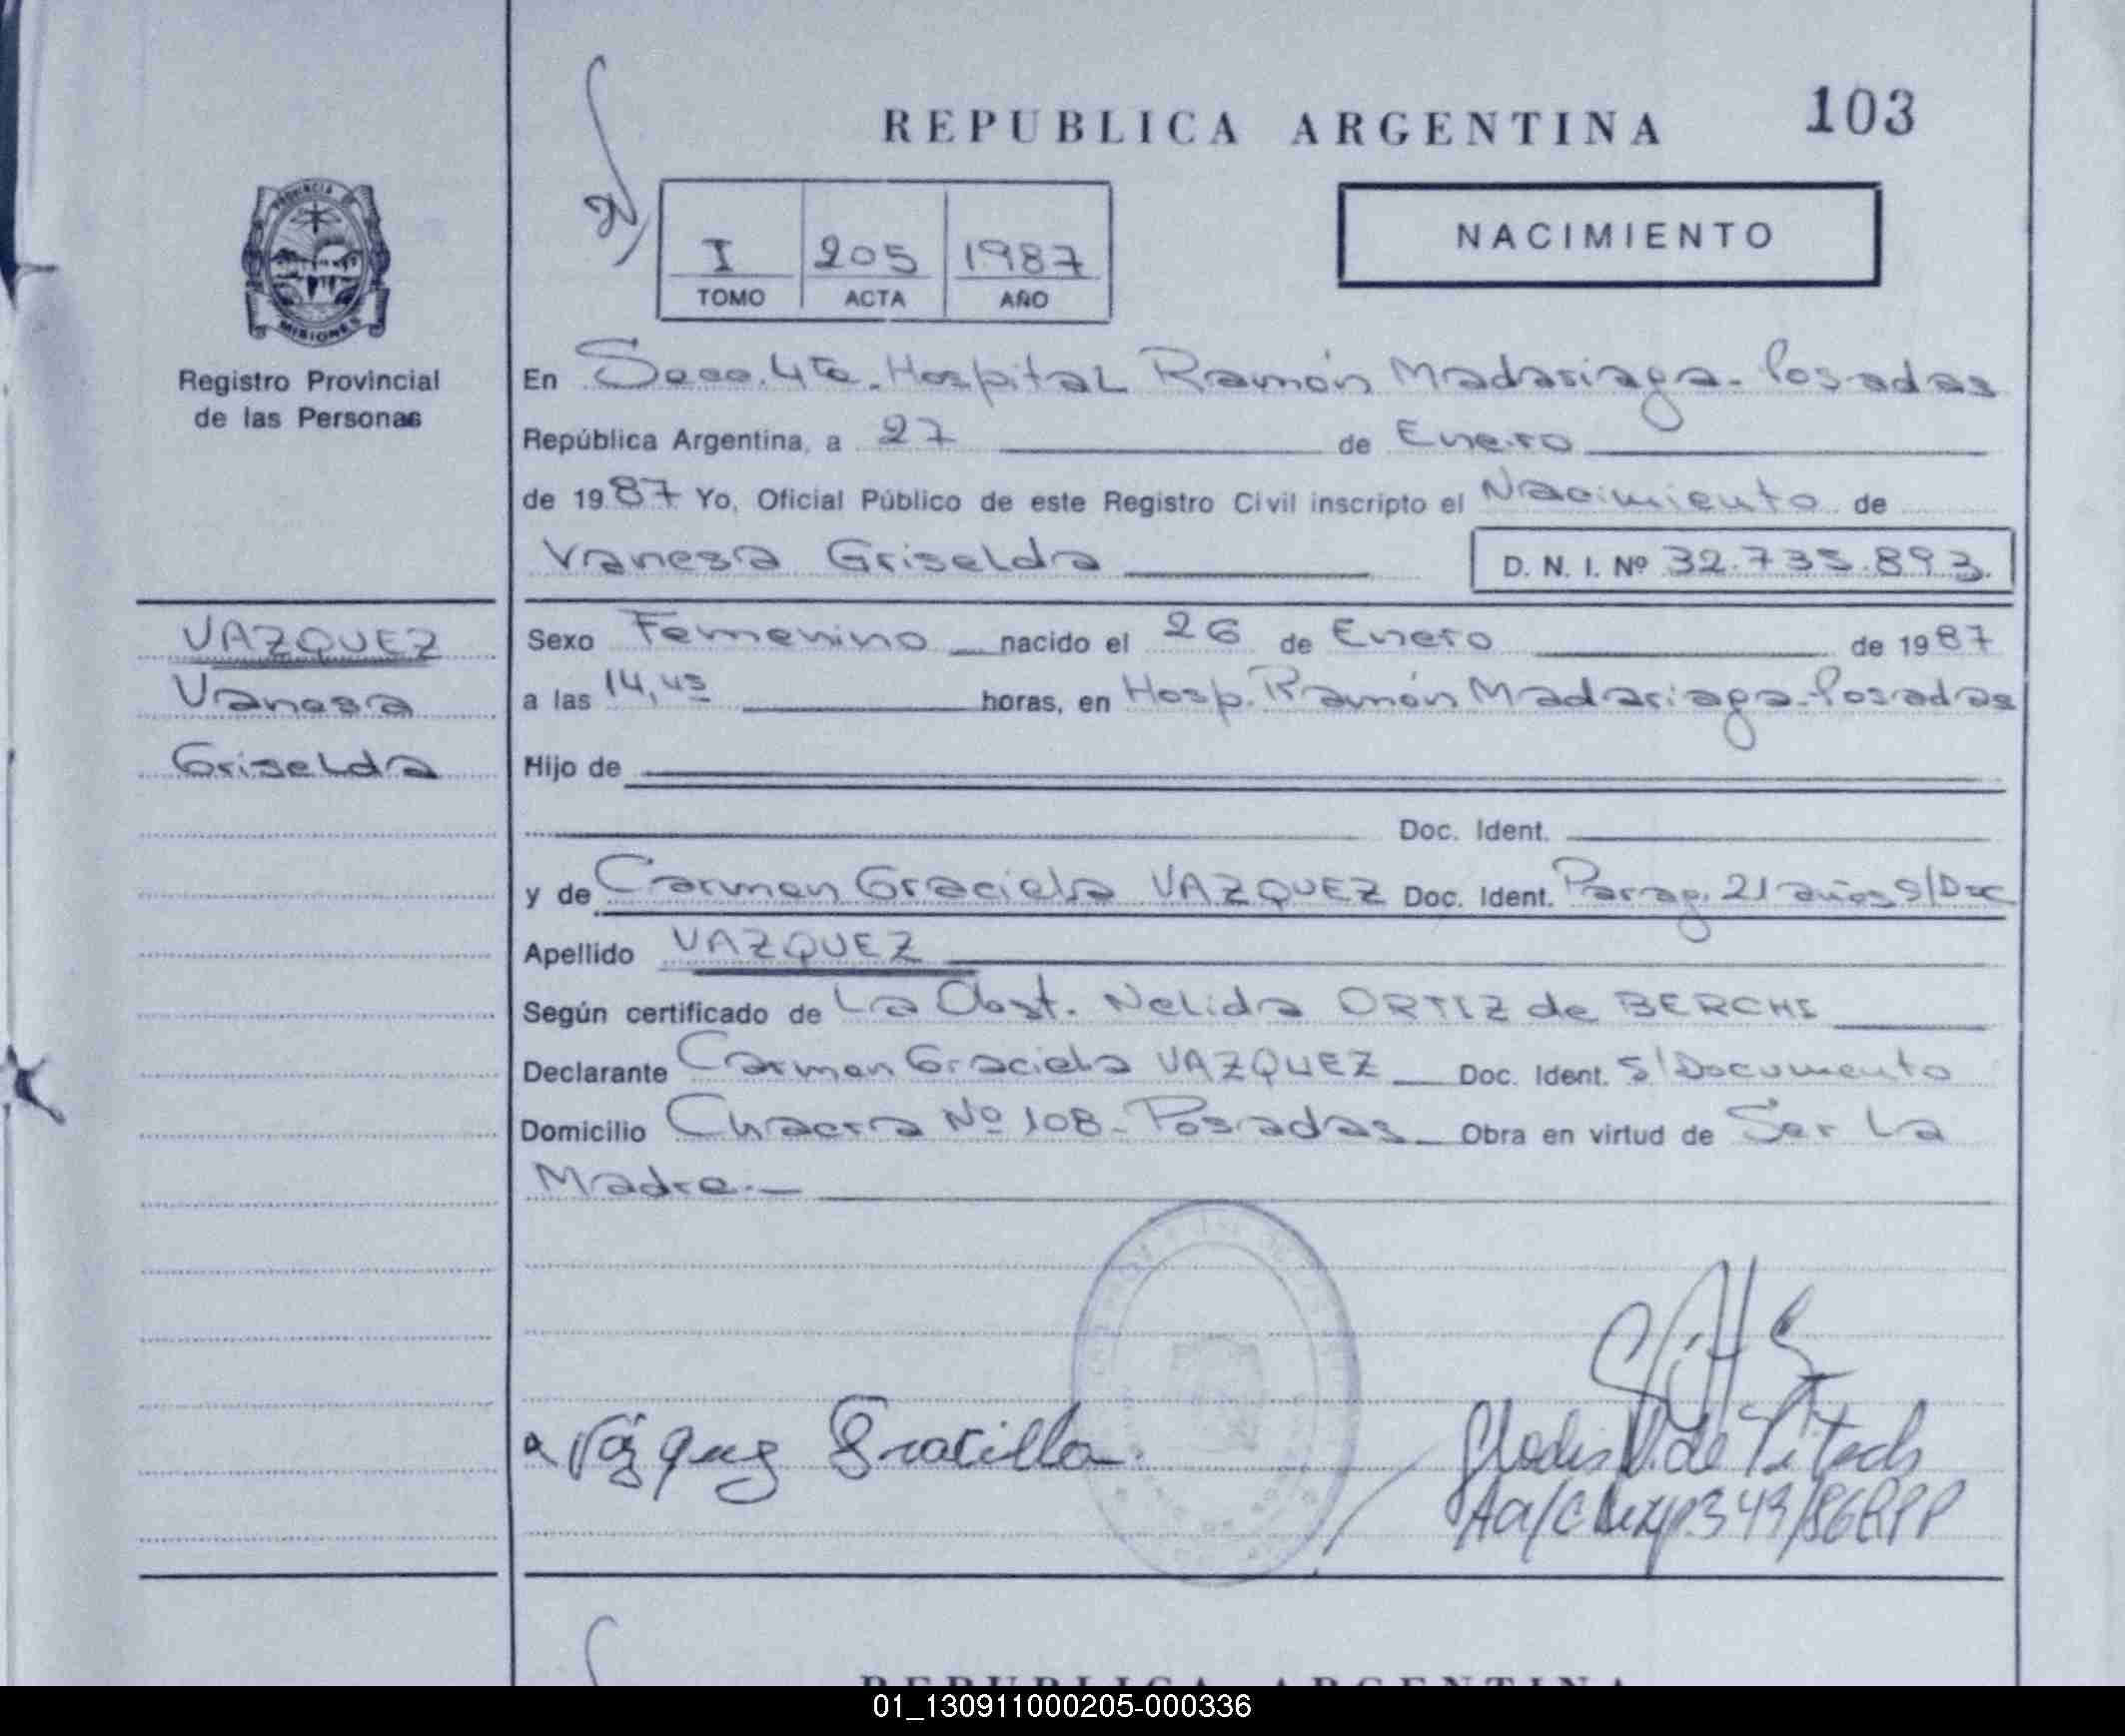 REPUBLICA ARGENTINA
103
I 205 1987
TOMO ACTA AÑO
NACIMIENTO
PROVINCIA
MISIONES
Registro Provincial
de las Personas
En Secc. 4ta. Hospital Ramón Madariaga - Posadas
República Argentina, a 27 de Enero
de 1987 Yo, Oficial Público de este Registro Civil inscripto el Nacimiento de
Vanesa Griselda
D. N. I. Nº 32.735.893
VAZQUEZ
Vanesa
Griselda
Sexo Femenino nacido el 26 de Enero de 1987
a las 14,45 horas, en Hosp. Ramón Madariaga - Posadas
Hijo de
Doc. Ident.
y de Carmen Graciela VAZQUEZ Doc. Ident. Parag. 21 años S/Doc
Apellido VAZQUEZ
Según certificado de La Obst. Nelida ORTIZ de BERCHI
Declarante Carmen Graciela VAZQUEZ Doc. Ident. S/Documento
Domicilio Chacra Nº 108 - Posadas Obra en virtud de Ser La
Madre.-
Vázquez
REPUBLICA ARGENTINA
01_130911000205-000336